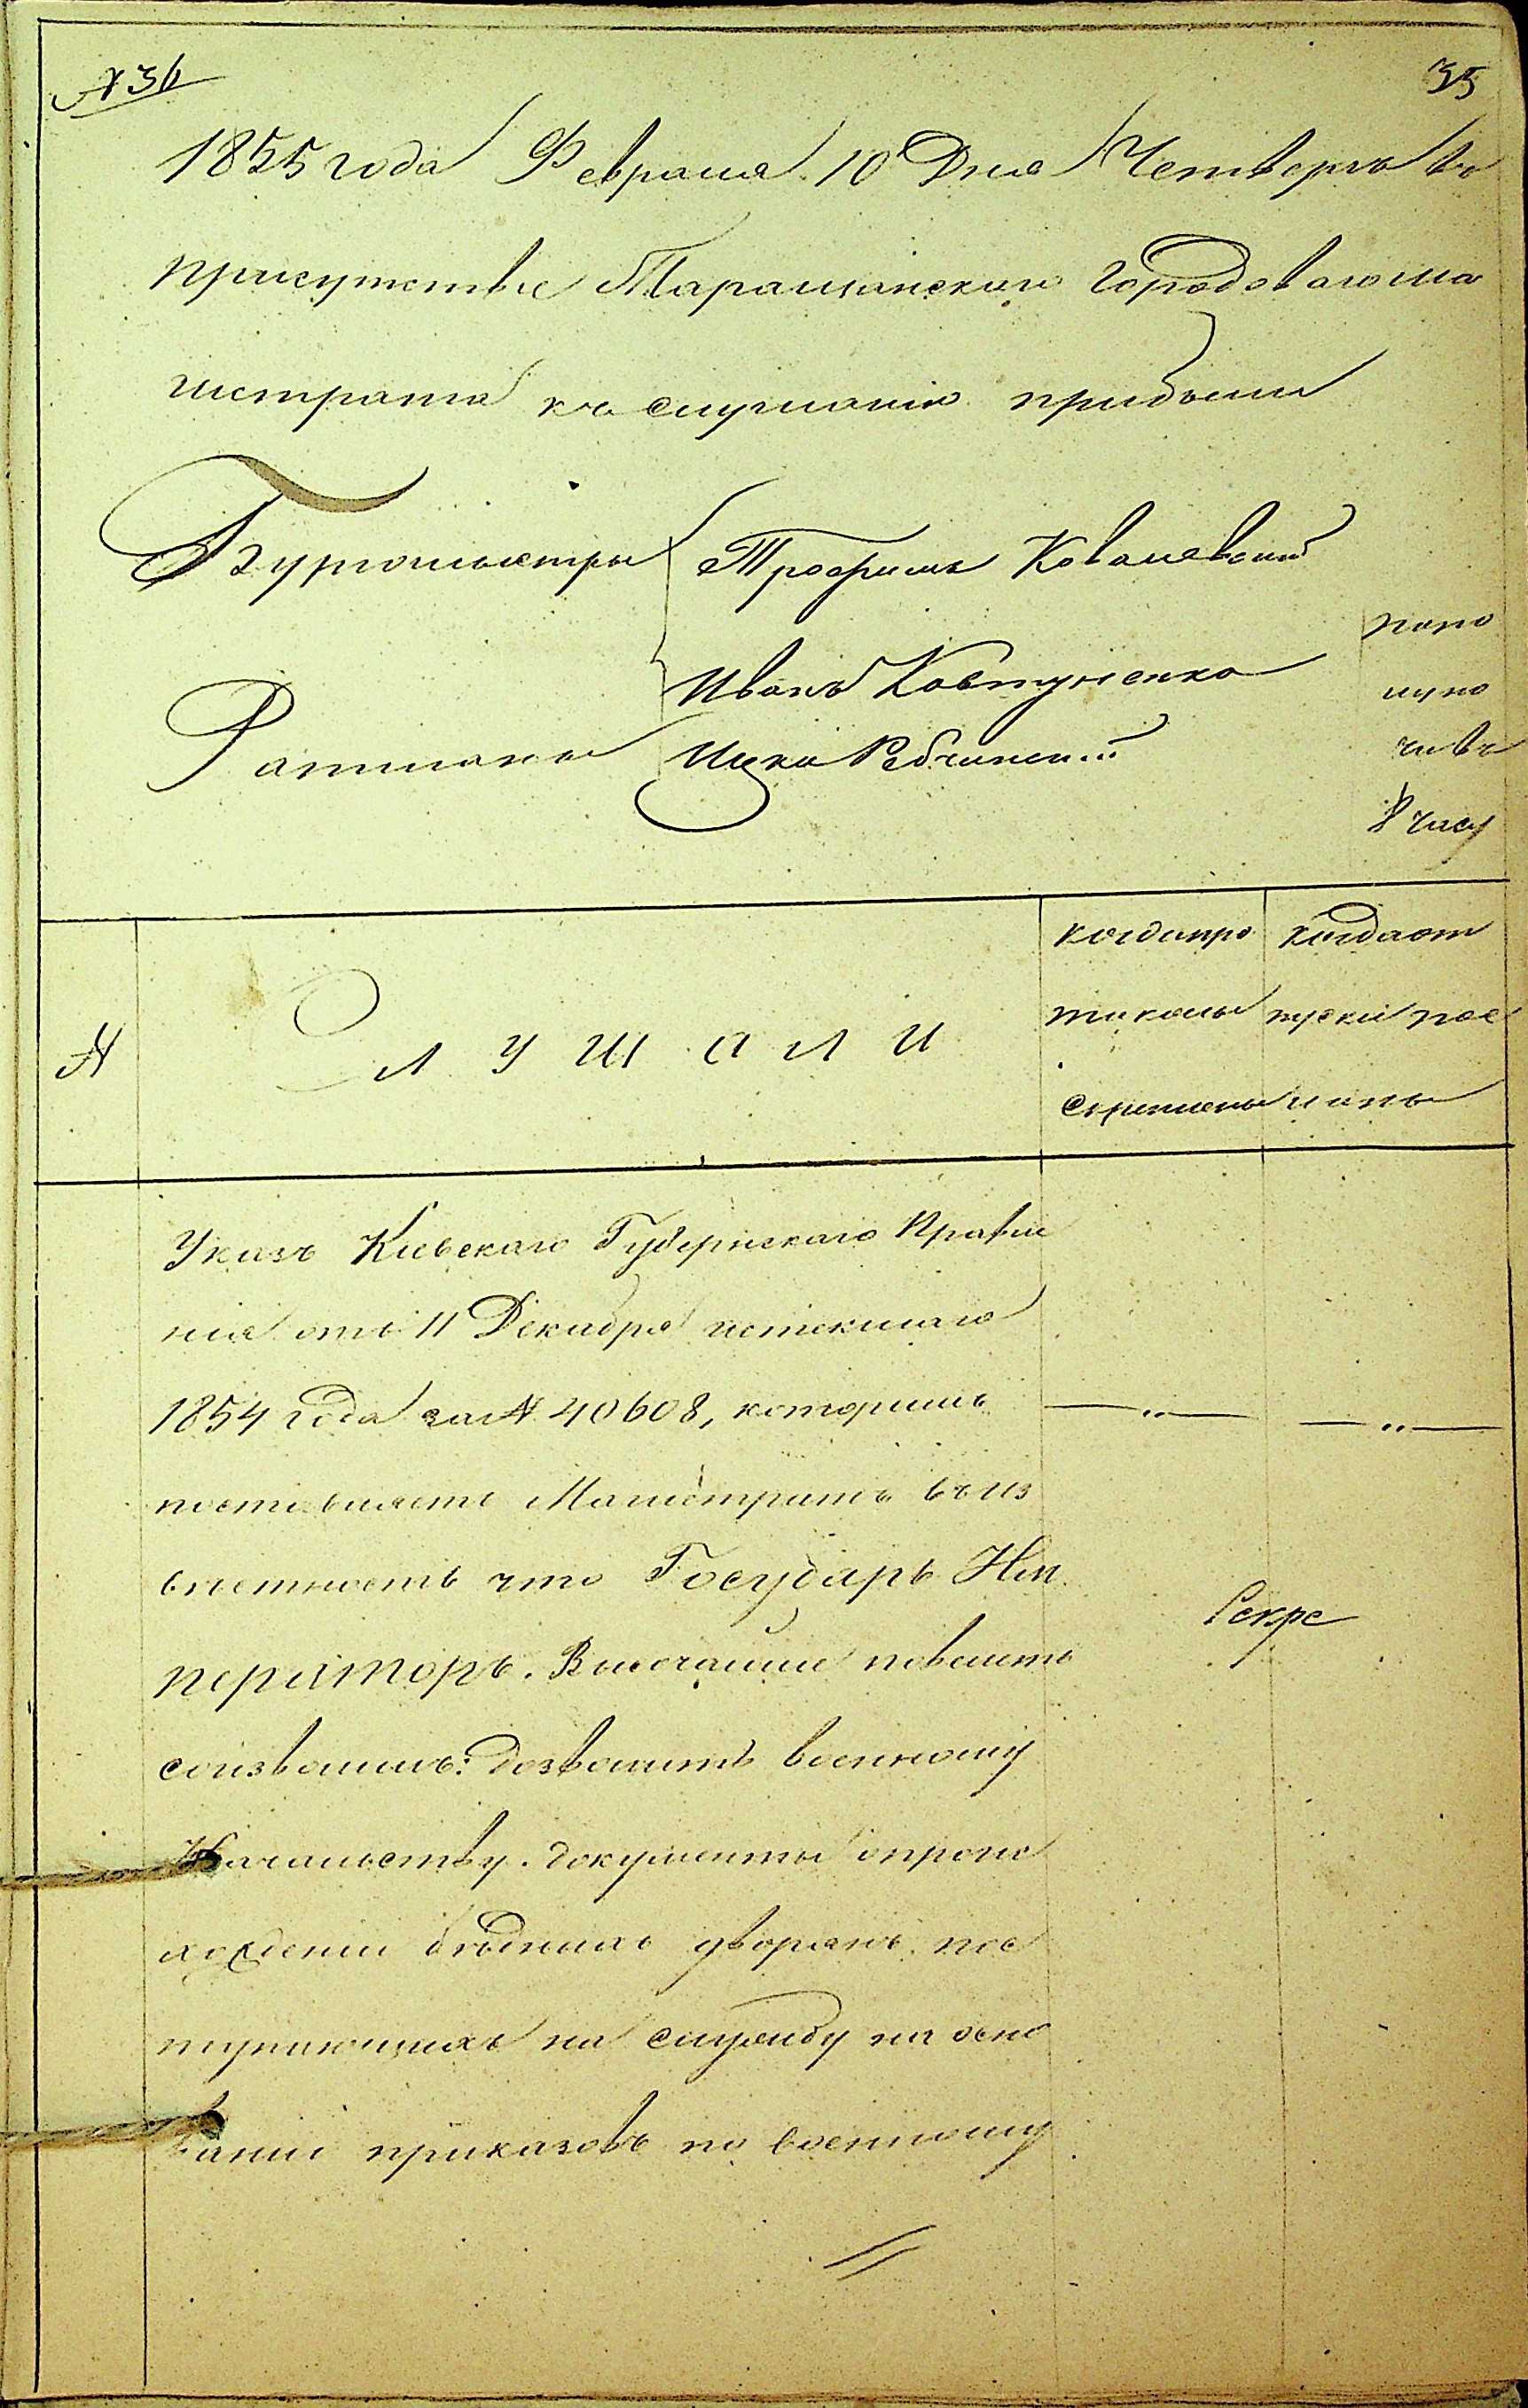 № 36
35
1855 года Февраля 10 Дня Четвергъ въ
присутствіе Таращанского Городоваго ма
гистрата къ слушанію прибыли
Бургомистры Трофимъ Ковалевскій
Иванъ Ковтуненко
Ратманы Ицко
попо
луно
чи въ
часу
№
Слушали
когда про
токолы
скреплены
когда от
пуски пос
ланы
Указъ Кіевскаго Губернскаго Правле
нія отъ 11 Декабря истекшаго
1854 года за № 40608, которымъ
поставляетъ Магистратъ въ из
вѣстность что Государь Им
ператоръ. Высочайше повелѣть
соизволилъ: дозволить военному
Начальству. документы опроис
хожденіи бѣдныхъ дворянъ. пос
тупающихъ на службу на осно
ваніи приказовъ по военному
Секре